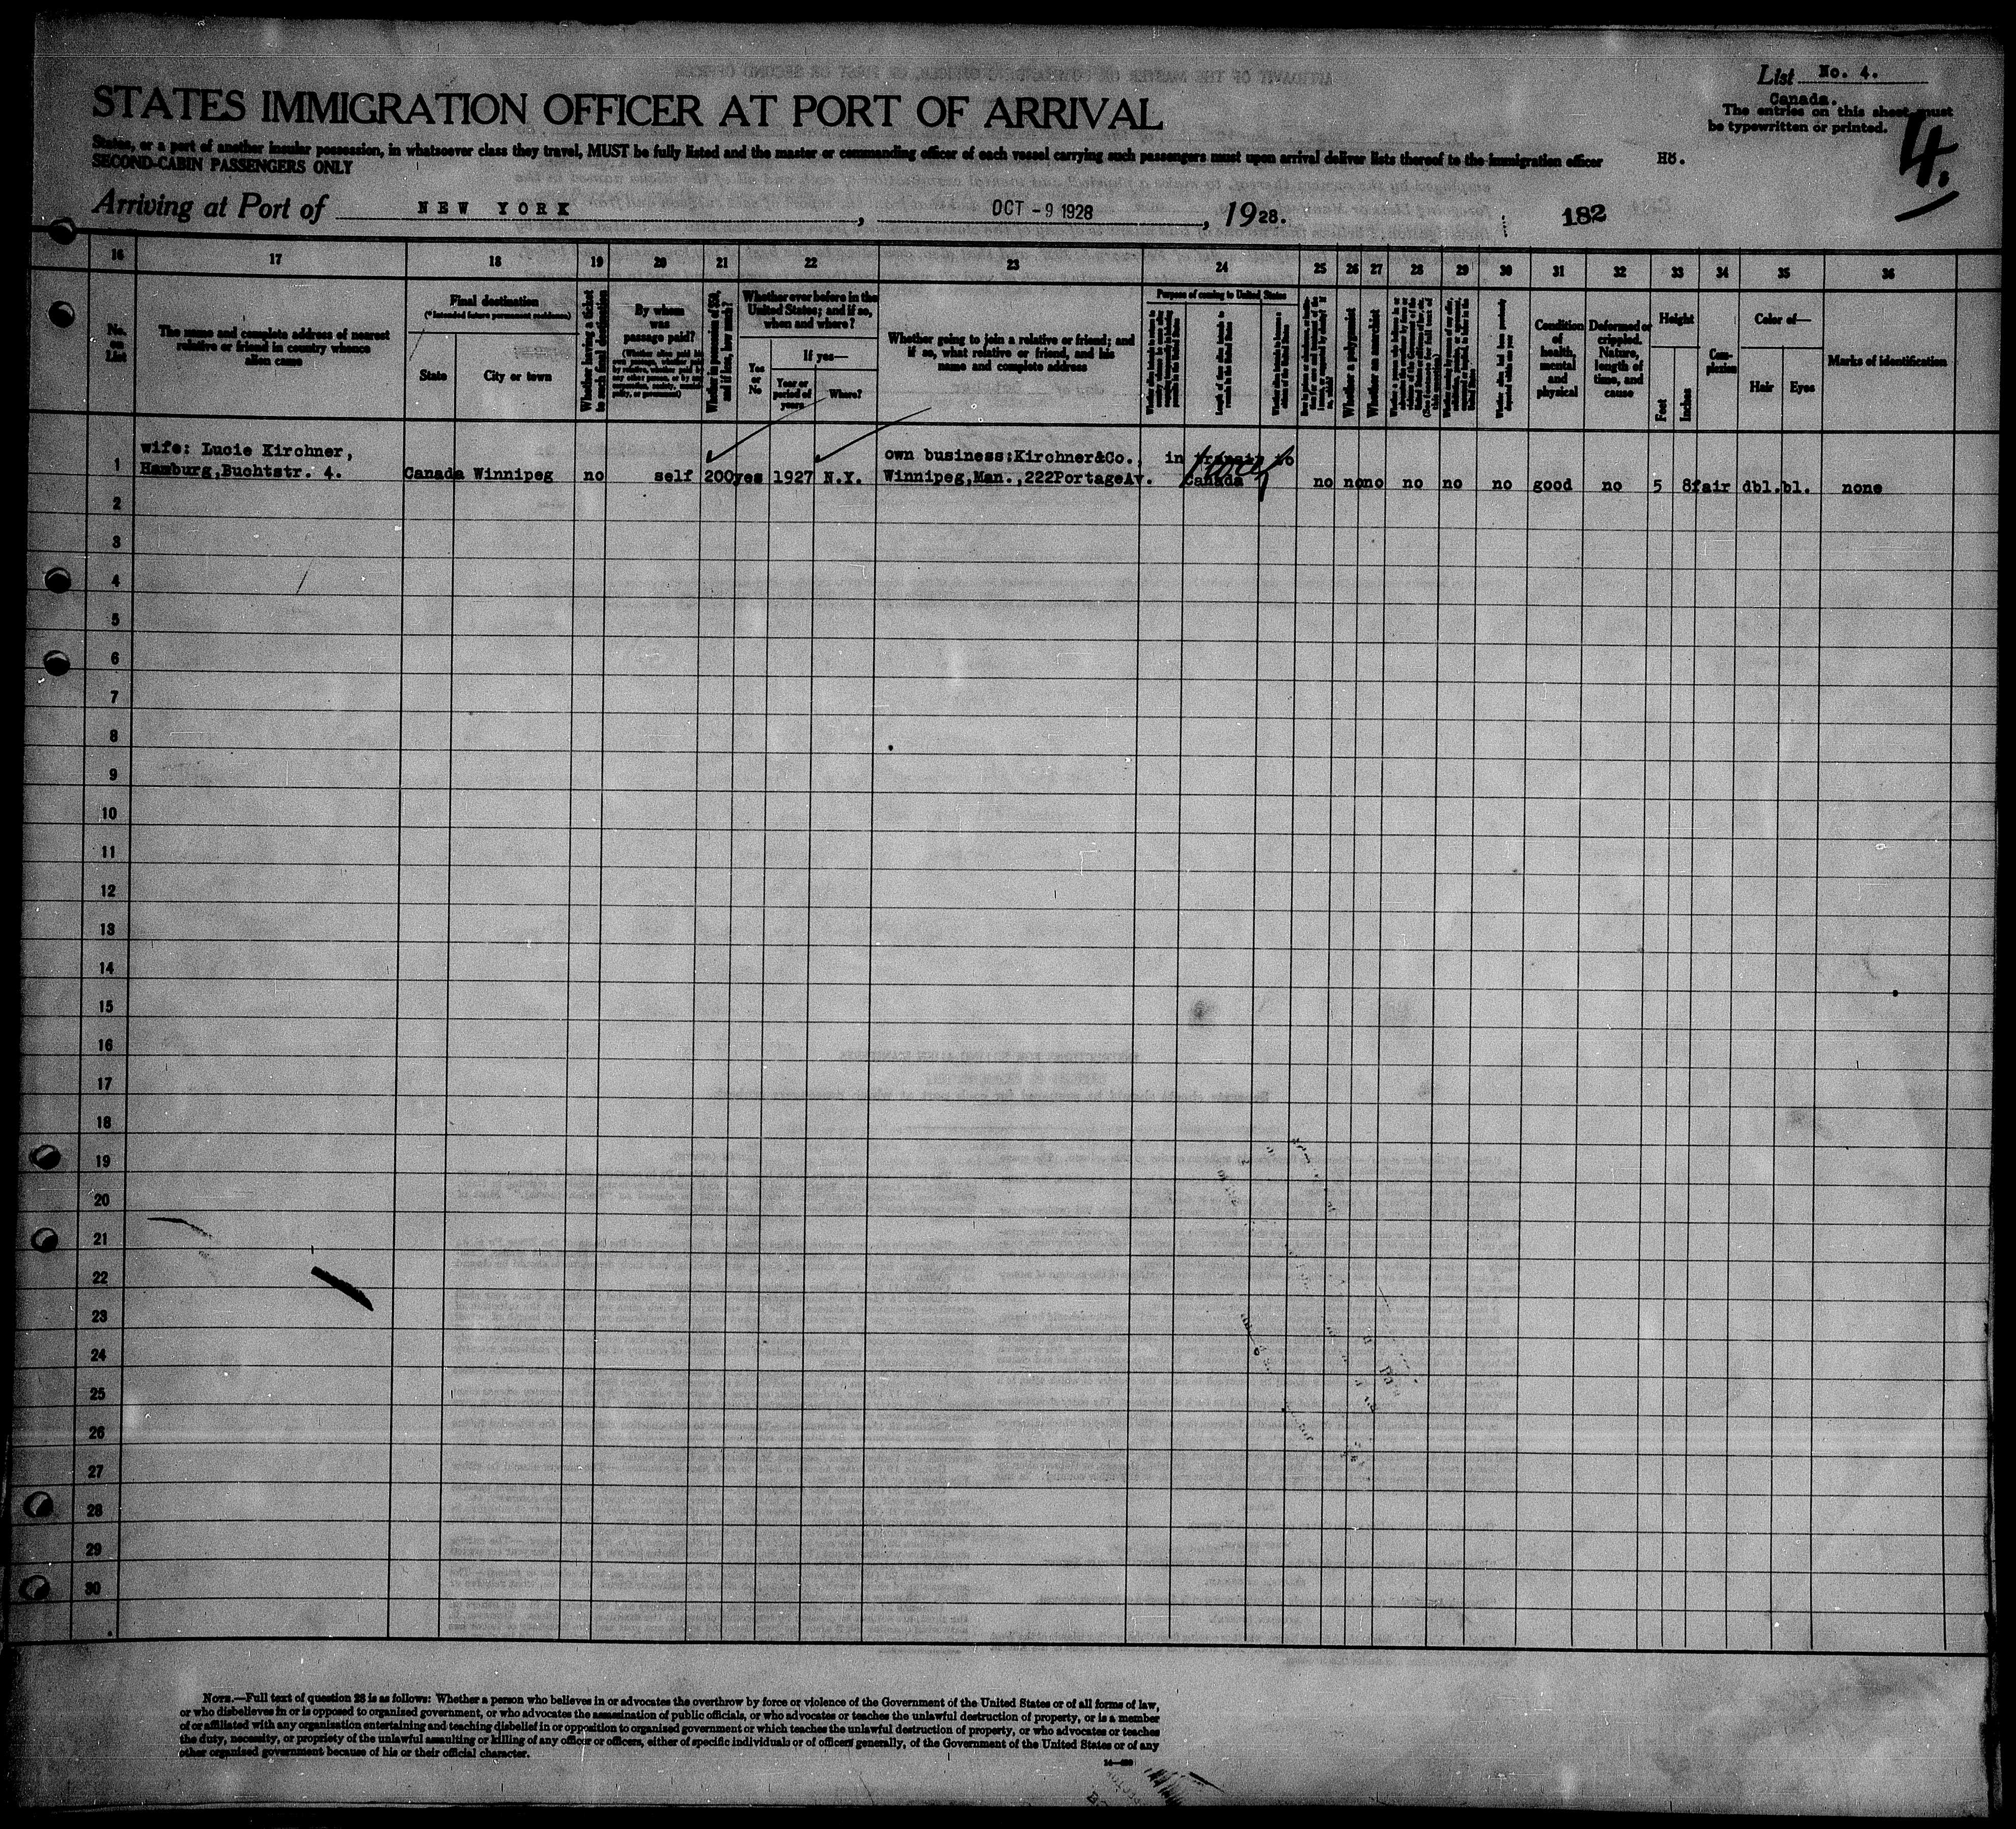 List No. 4.
Canada.
The entries on this sheet must
be typewritten or printed.
4.
STATES IMMIGRATION OFFICER AT PORT OF ARRIVAL
States, or a port of another insular possession, in whatsoever class they travel, MUST be fully listed and the master or commanding officer of each vessel carrying such passengers must upon arrival deliver lists thereof to the immigration officer
SECOND-CABIN PASSENGERS ONLY
Arriving at Port of NEW YORK, OCT - 9 1928, 1928.
182
16 17 18 19 20 21 22 23 24 25 26 27 28 29 30 31 32 33 34 35 36
No. on List
The name and complete address of nearest
relative or friend in country whence
alien came
Final destination
(*Intended future permanent residence)
State
City or town
Whether having a ticket
to such final destination
By whom
was
passage paid?
Whether in possession of $50,
and if less, how much?
Whether ever before in the
United States; and if so,
when and where?
Yes
or
No
If yes—
Year or
period of
years
Where?
Whether going to join a relative or friend; and
if so, what relative or friend, and his
name and complete address
Purpose of coming to United States
Whether a polygamist
Whether an anarchist
Condition
of
health,
mental
and
physical
Deformed or
crippled.
Nature,
length of
time, and
cause
Height
Feet
Inches
Com-
plexion
Color of—
Hair
Eyes
Marks of identification
1
wife: Lucie Kirchner,
Hamburg,Buchtstr. 4.
Canada Winnipeg no self 200 yes 1927 N.Y.
own business:Kirchner&Co.,
Winnipeg,Man.,222PortageAv.
in transit to
Canada
no no no no no no good no 5 8 fair dbl. bl. none
2
3
4
5
6
7
8
9
10
11
12
13
14
15
16
17
18
19
20
21
22
23
24
25
26
27
28
29
30
NOTE.—Full text of question 28 is as follows: Whether a person who believes in or advocates the overthrow by force or violence of the Government of the United States or of all forms of law,
or who disbelieves in or is opposed to organized government, or who advocates the assassination of public officials, or who advocates or teaches the unlawful destruction of property, or is a member
of or affiliated with any organization entertaining and teaching disbelief in or opposition to organized government or which teaches the unlawful destruction of property, or who advocates or teaches
the duty, necessity, or propriety of the unlawful assaulting or killing of any officer or officers, either of specific individuals or of officers generally, of the Government of the United States or of any
other organized government because of his or their official character.